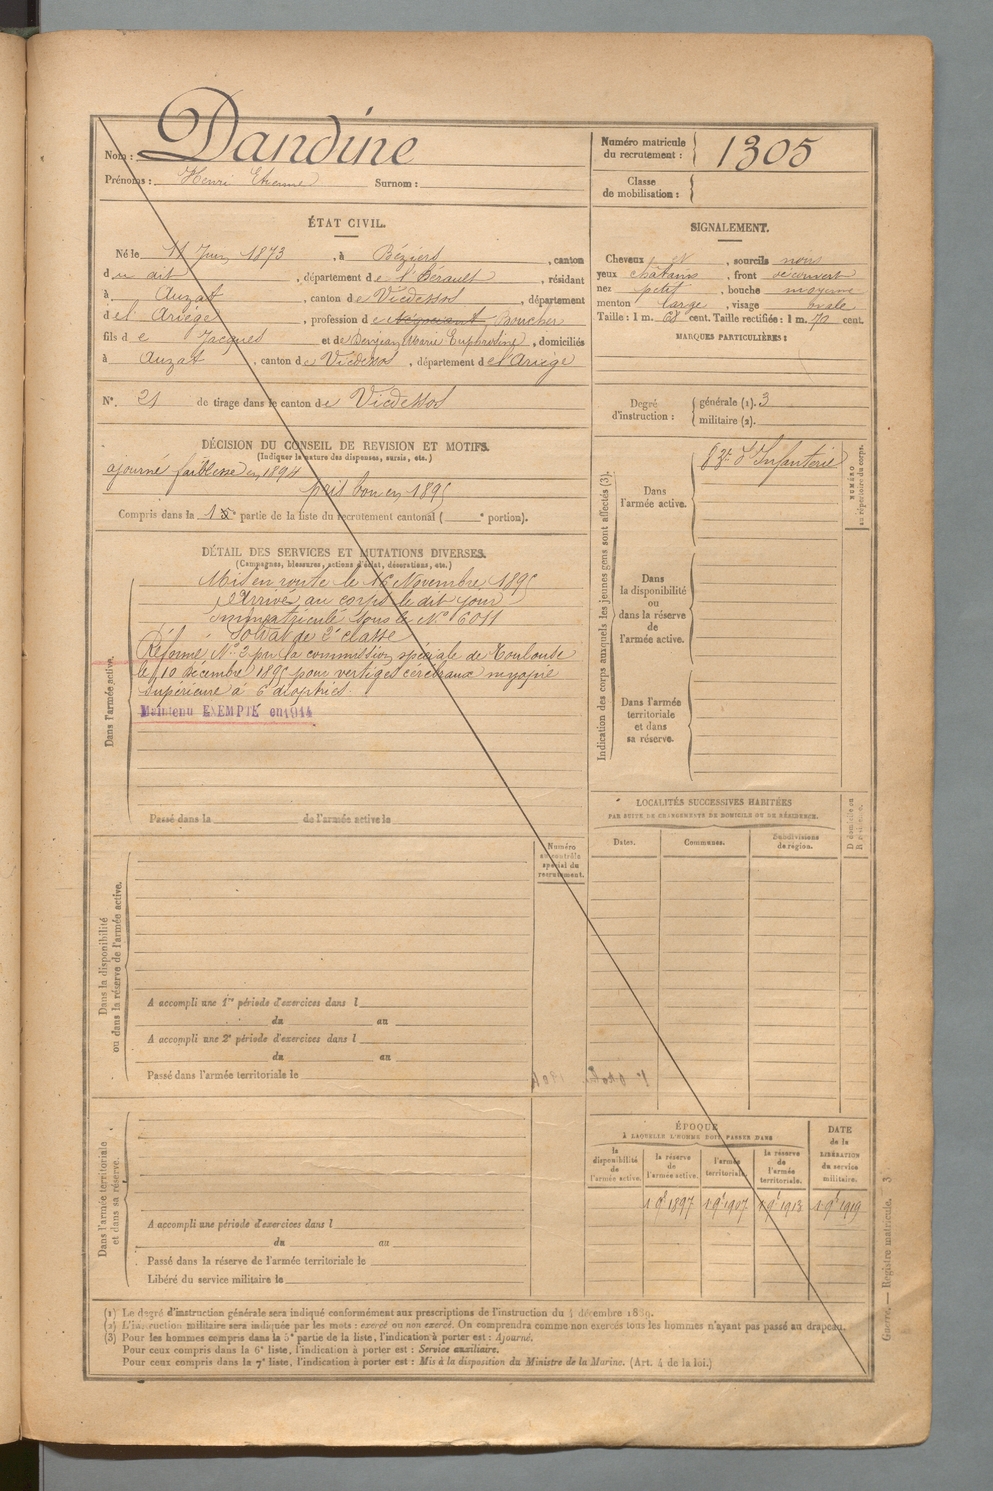 Nom : Dandine
Prénoms : Henri Etienne Surnom :
Numéro matricule du recrutement : 1305
Classe de mobilisation :
ÉTAT CIVIL.
Né le 11 Juin 1873, à Béziers, canton
du dit, département de l'Hérault, résidant
à Auzat, canton de Vicdessos, département
de l'Ariège, profession de Boucher
fils de Jacques et de Marie Euphrosine, domiciliés
à Auzat, canton de Vicdessos, département de l'Ariège
N°. 21 de tirage dans le canton de Vicdessos
SIGNALEMENT.
Cheveux et, sourcils noirs
yeux châtains, front découvert
nez petit, bouche moyenne
menton large, visage ovale
Taille : 1 m. 68 cent. Taille rectifiée : 1 m. 70 cent.
MARQUES PARTICULIÈRES :
Degré d'instruction : générale (1). 3
militaire (2).
DÉCISION DU CONSEIL DE REVISION ET MOTIFS.
(Indiquer la nature des dispenses, sursis, etc.)
ajourné faiblesse en 1894
pris bon en 1895
Compris dans la 1e partie de la liste du recrutement cantonal ( e portion).
DÉTAIL DES SERVICES ET MUTATIONS DIVERSES.
(Campagnes, blessures, actions d'éclat, décorations, etc.)
Dans l'armée active.
Mis en route le 16 Novembre 1895
Arrivé au corps le dit jour
immatriculé sous le N° 6011
Soldat de 2e classe
Réformé N° 2 par la commission spéciale de Toulouse
le 10 décembre 1895 pour vertiges cérébraux myopie
supérieure à 6 dioptries.
Maintenu EXEMPTÉ en 1914
Passé dans la de l'armée active le
Indication des corps auxquels les jeunes gens sont affectés (3).
Dans l'armée active.
83e d'Infanterie
NUMÉRO au répertoire du corps.
Dans la disponibilité ou dans la réserve de l'armée active.
Dans l'armée territoriale et dans sa réserve.
LOCALITÉS SUCCESSIVES HABITÉES
PAR SUITE DE CHANGEMENTS DE DOMICILE OU DE RÉSIDENCE.
Dates. Communes. Subdivisions de région. D domicile ou R résidence.
Numéro au contrôle spécial du recrutement.
Dans la disponibilité ou dans la réserve de l'armée active.
A accompli une 1re période d'exercices dans l
du au
A accompli une 2e période d'exercices dans l
du au
Passé dans l'armée territoriale le
Dans l'armée territoriale et dans sa réserve.
A accompli une période d'exercices dans l
du au
Passé dans la réserve de l'armée territoriale le
Libéré du service militaire le
ÉPOQUE
À LAQUELLE L'HOMME DOIT PASSER DANS
la disponibilité de l'armée active. la réserve de l'armée active. l'armée territoriale. la réserve de l'armée territoriale. DATE de la LIBÉRATION du service militaire.
1 9bre 1897 1 9bre 1907 1 9bre 1913 1 9bre 1919
(1) Le degré d'instruction générale sera indiqué conformément aux prescriptions de l'instruction du 4 décembre 1889.
(2) L'instruction militaire sera indiquée par les mots : exercé ou non exercé. On comprendra comme non exercés tous les hommes n'ayant pas passé au drapeau.
(3) Pour les hommes compris dans la 5e partie de la liste, l'indication à porter est : Ajourné.
Pour ceux compris dans la 6e liste, l'indication à porter est : Service auxiliaire.
Pour ceux compris dans la 7e liste, l'indication à porter est : Mis à la disposition du Ministre de la Marine. (Art. 4 de la loi.)
Guerre. — Registre matricule. — 3.